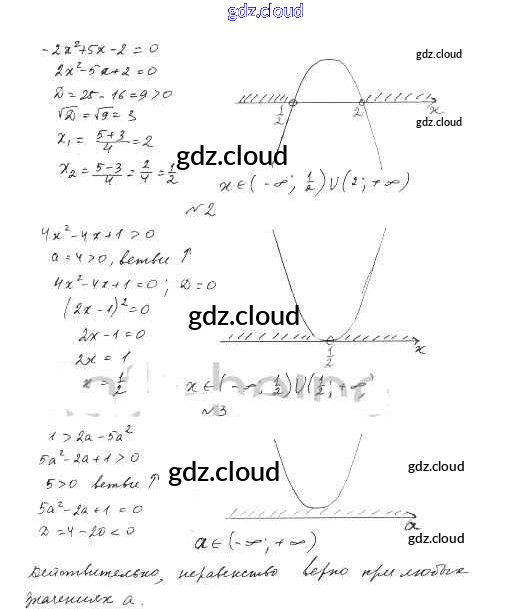 gdz.cloud
-2x²+5x-2=0
2x²-5x+2=0
D=25-16=9>0
√D=√9=3
x₁=(5+3)/4=2
x₂=(5-3)/4=2/4=1/2
gdz.cloud
gdz.cloud
1/2 2 x
gdz.cloud
x∈(-∞; 1/2)∪(2; +∞)
№2
4x²-4x+1>0
a=4>0, ветви ↑
4x²-4x+1=0; D=0
(2x-1)²=0
2x-1=0
2x=1
x=1/2
gdz.cloud
gdz.cloud
1/2 x
x∈(-∞, 1/2)∪(1/2; +∞
№3
1>2a-5a²
5a²-2a+1>0
5>0 ветви ↑
5a²-2a+1=0
D=4-20<0
gdz.cloud
gdz.cloud
gdz.cloud
a
a∈(-∞; +∞)
Действительно, неравенство верно при любых
значениях a.